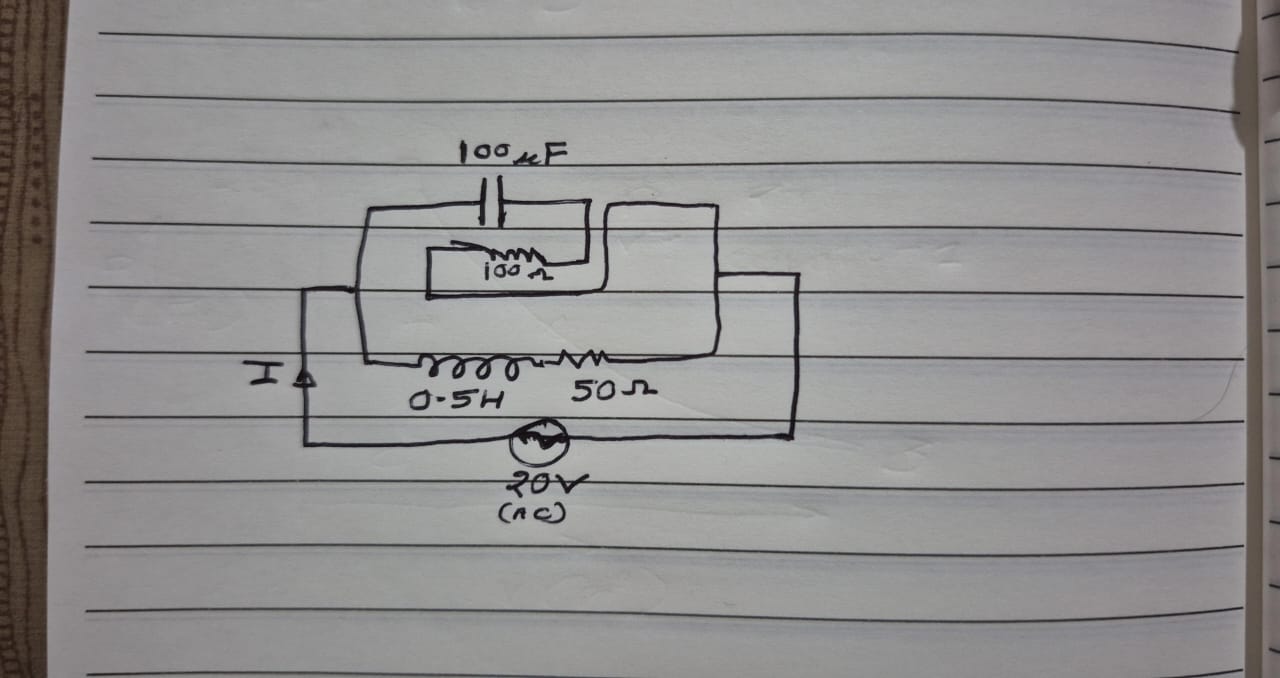 100 μF
100 Ω
I
0.5H 50 Ω
20V
(AC)